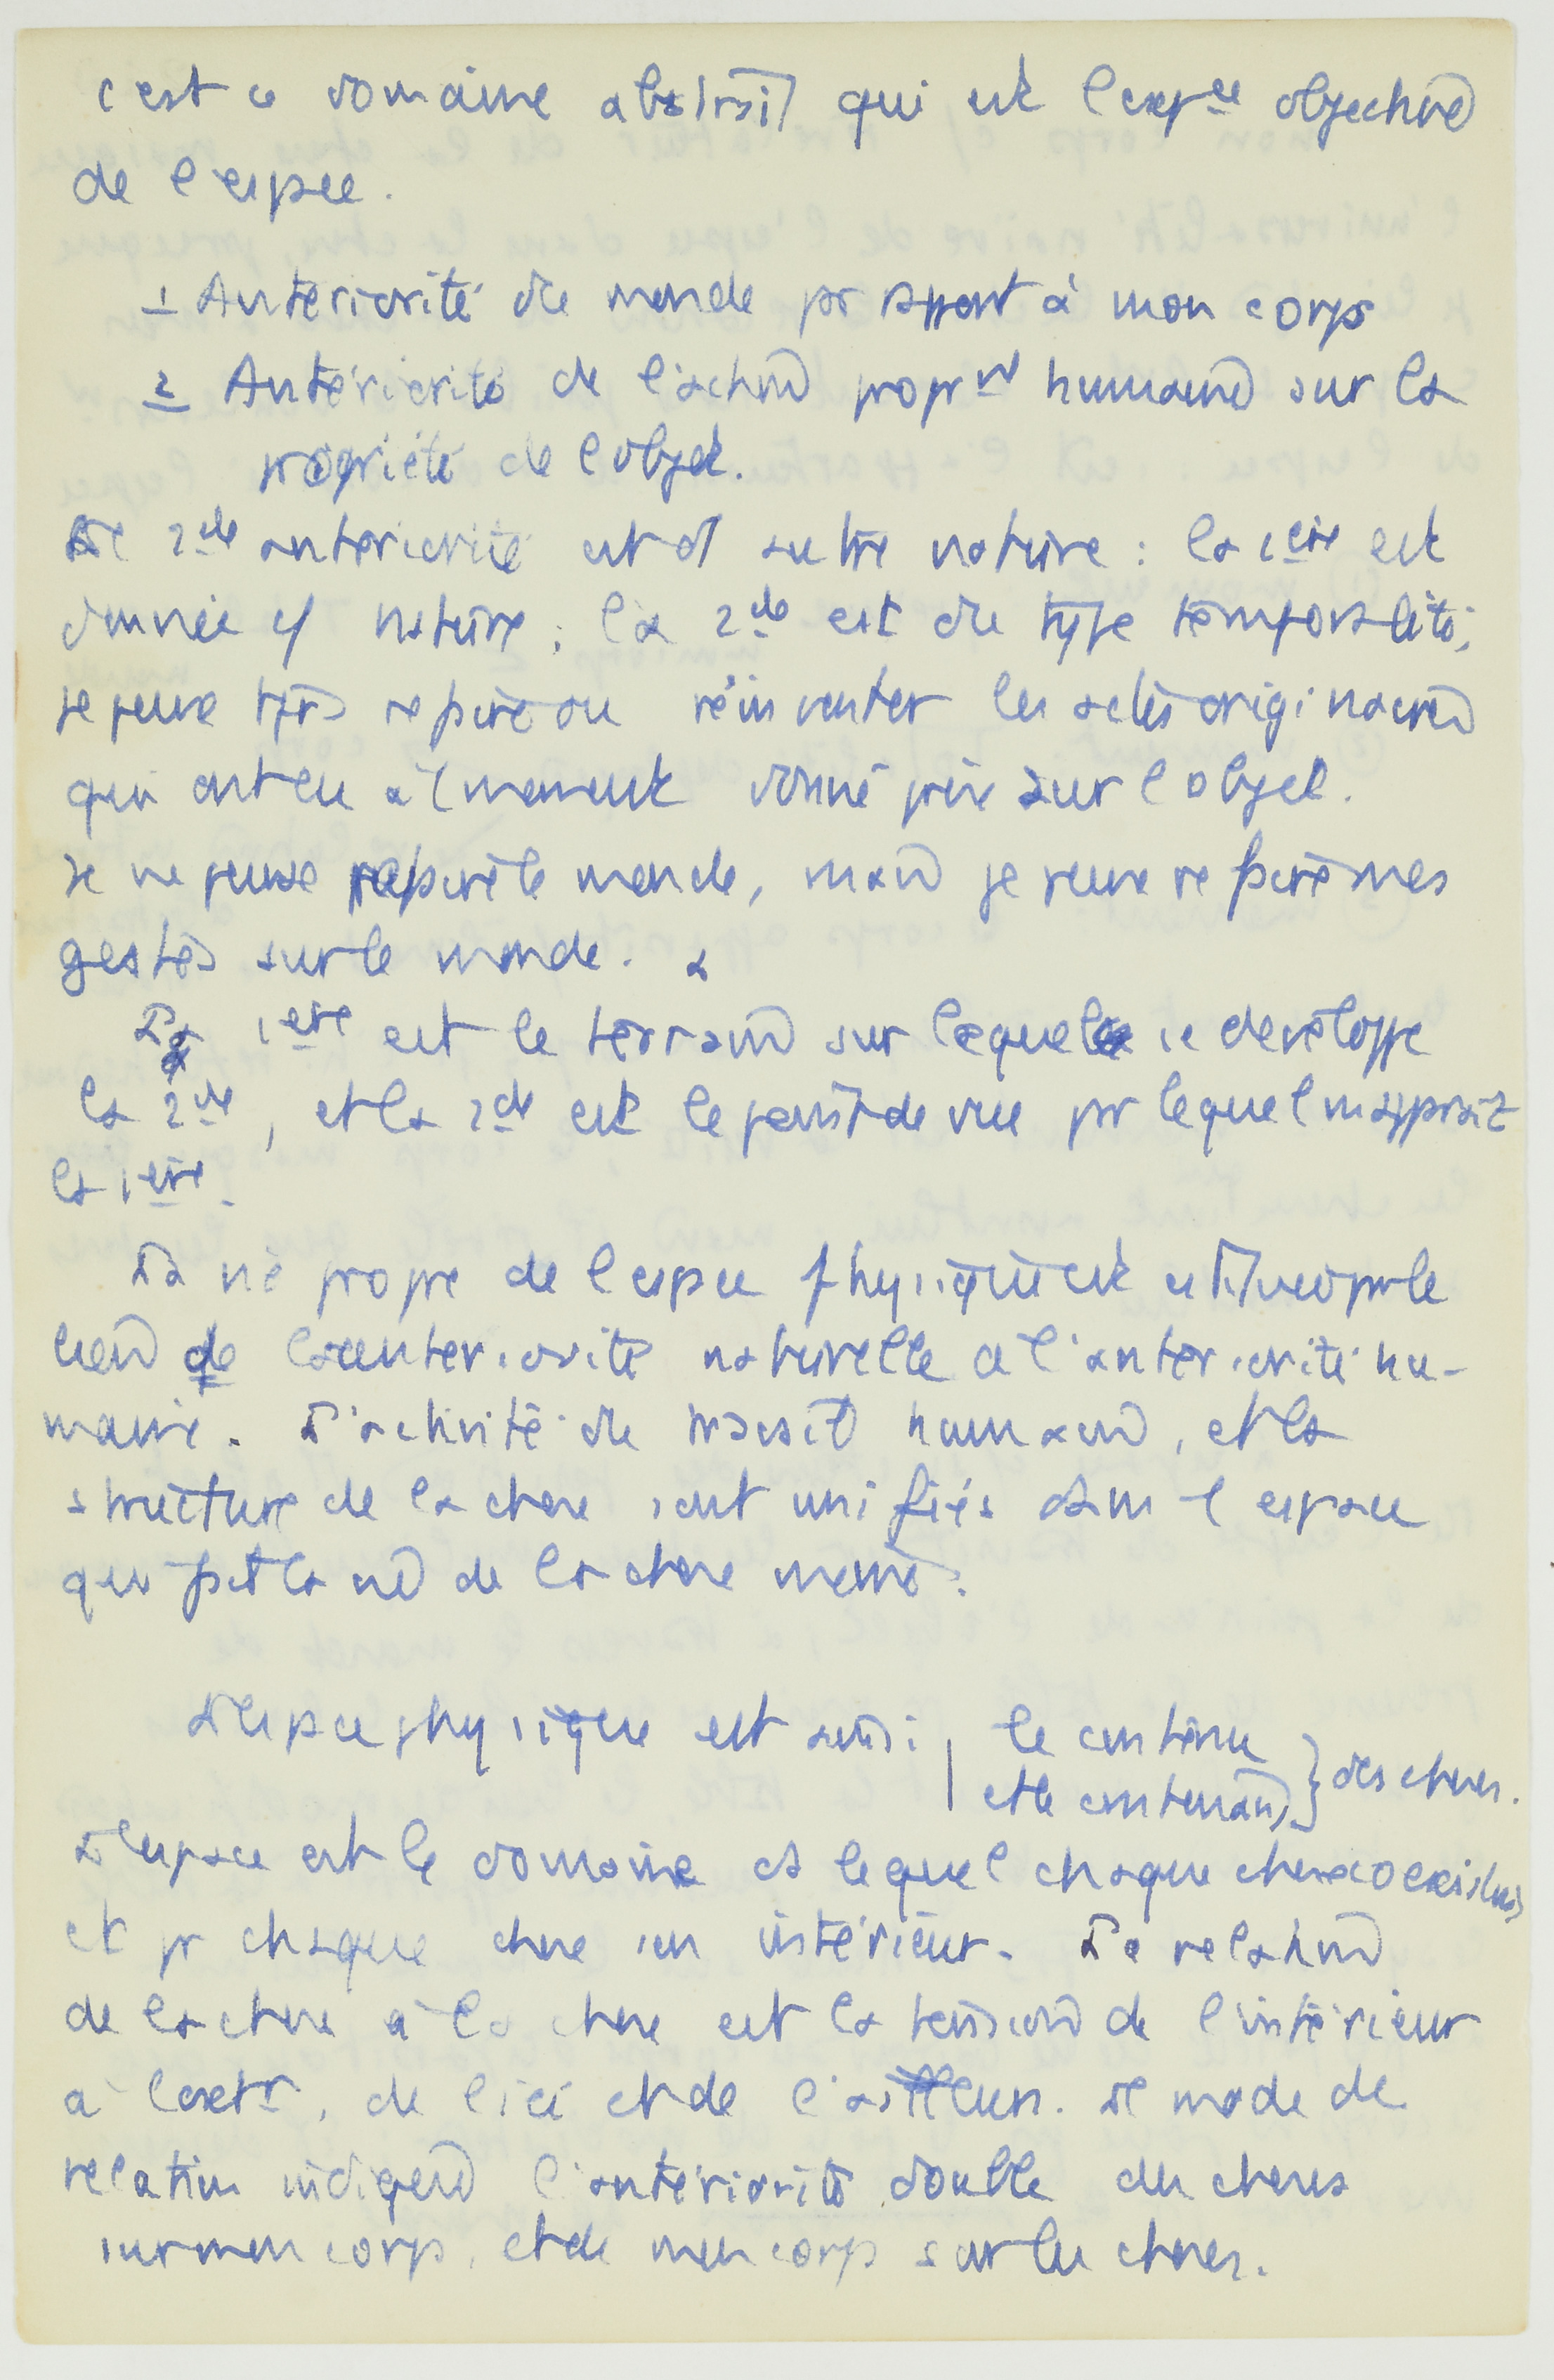 c'est ce domaine abstrait qui est l'expce objective
de l'espce.
1 Antériorité du monde pr rapport à mon corps
2 Antériorité de l'action proprt humaine sur la
propriété de l'objet.
2de antériorité est d'1 autre nature : la 1ère est
donnée c/ nature ; la 2de est du type temporalité ;
je peux tjrs refaire ou réinventer les actes originaires
qui ont eu à 1 moment donné prise sur l'objet.
Je ne peux refaire le monde, mais je peux refaire mes
gestes sur le monde.
La 1ère est le terrain sur lequel se développe
la 2de, et la 2de est le point de vue pr lequel m'apparait
la 1ère.
propre de l'espce physique est
lien de l'antériorité naturelle à l'antériorité hu-
maine. L'activité du travail humain, et la
structure de la chose sont unifiés dans l'espace
qui fait la de la chose même.
L'espce physique est ainsi : | le contenu
et le contenant } des choses.
L'espace est le domaine ds lequel chaque chose coexiste
et pr chaque chose son intérieur. La relation
de la chose à la chose est la tension de l'intérieur
à l'extr, de l'ici et de l'ailleurs. Le mode de
relation indique l'antériorité double des choses
sur mon corps, et de mon corps sur les choses.